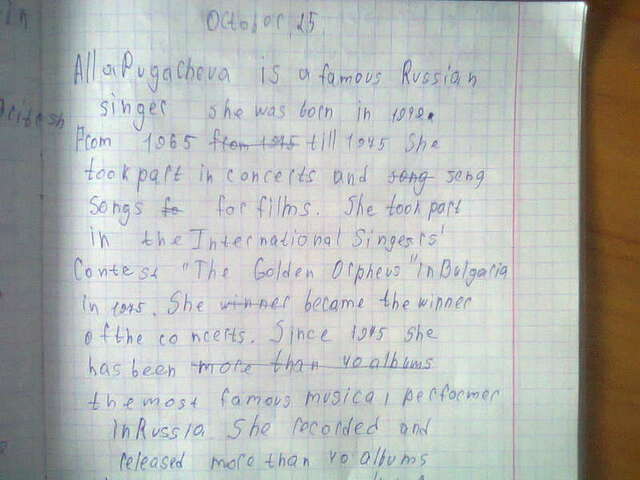 October, 25
Alla Pugacheva is a famous Russian
singer she was born in 1949.
From 1965 from 1975 till 1975 She
took part in concerts and song song
songs fo for films. She took part
in the International Singers'
Contest "The Golden Orpheus" in Bulgaria
in 1975. She winner became the winner
of the concerts. Since 1975 she
has been more than 40 albums
the most famous musical performer
in Russia She recorded and
released more than 40 albums